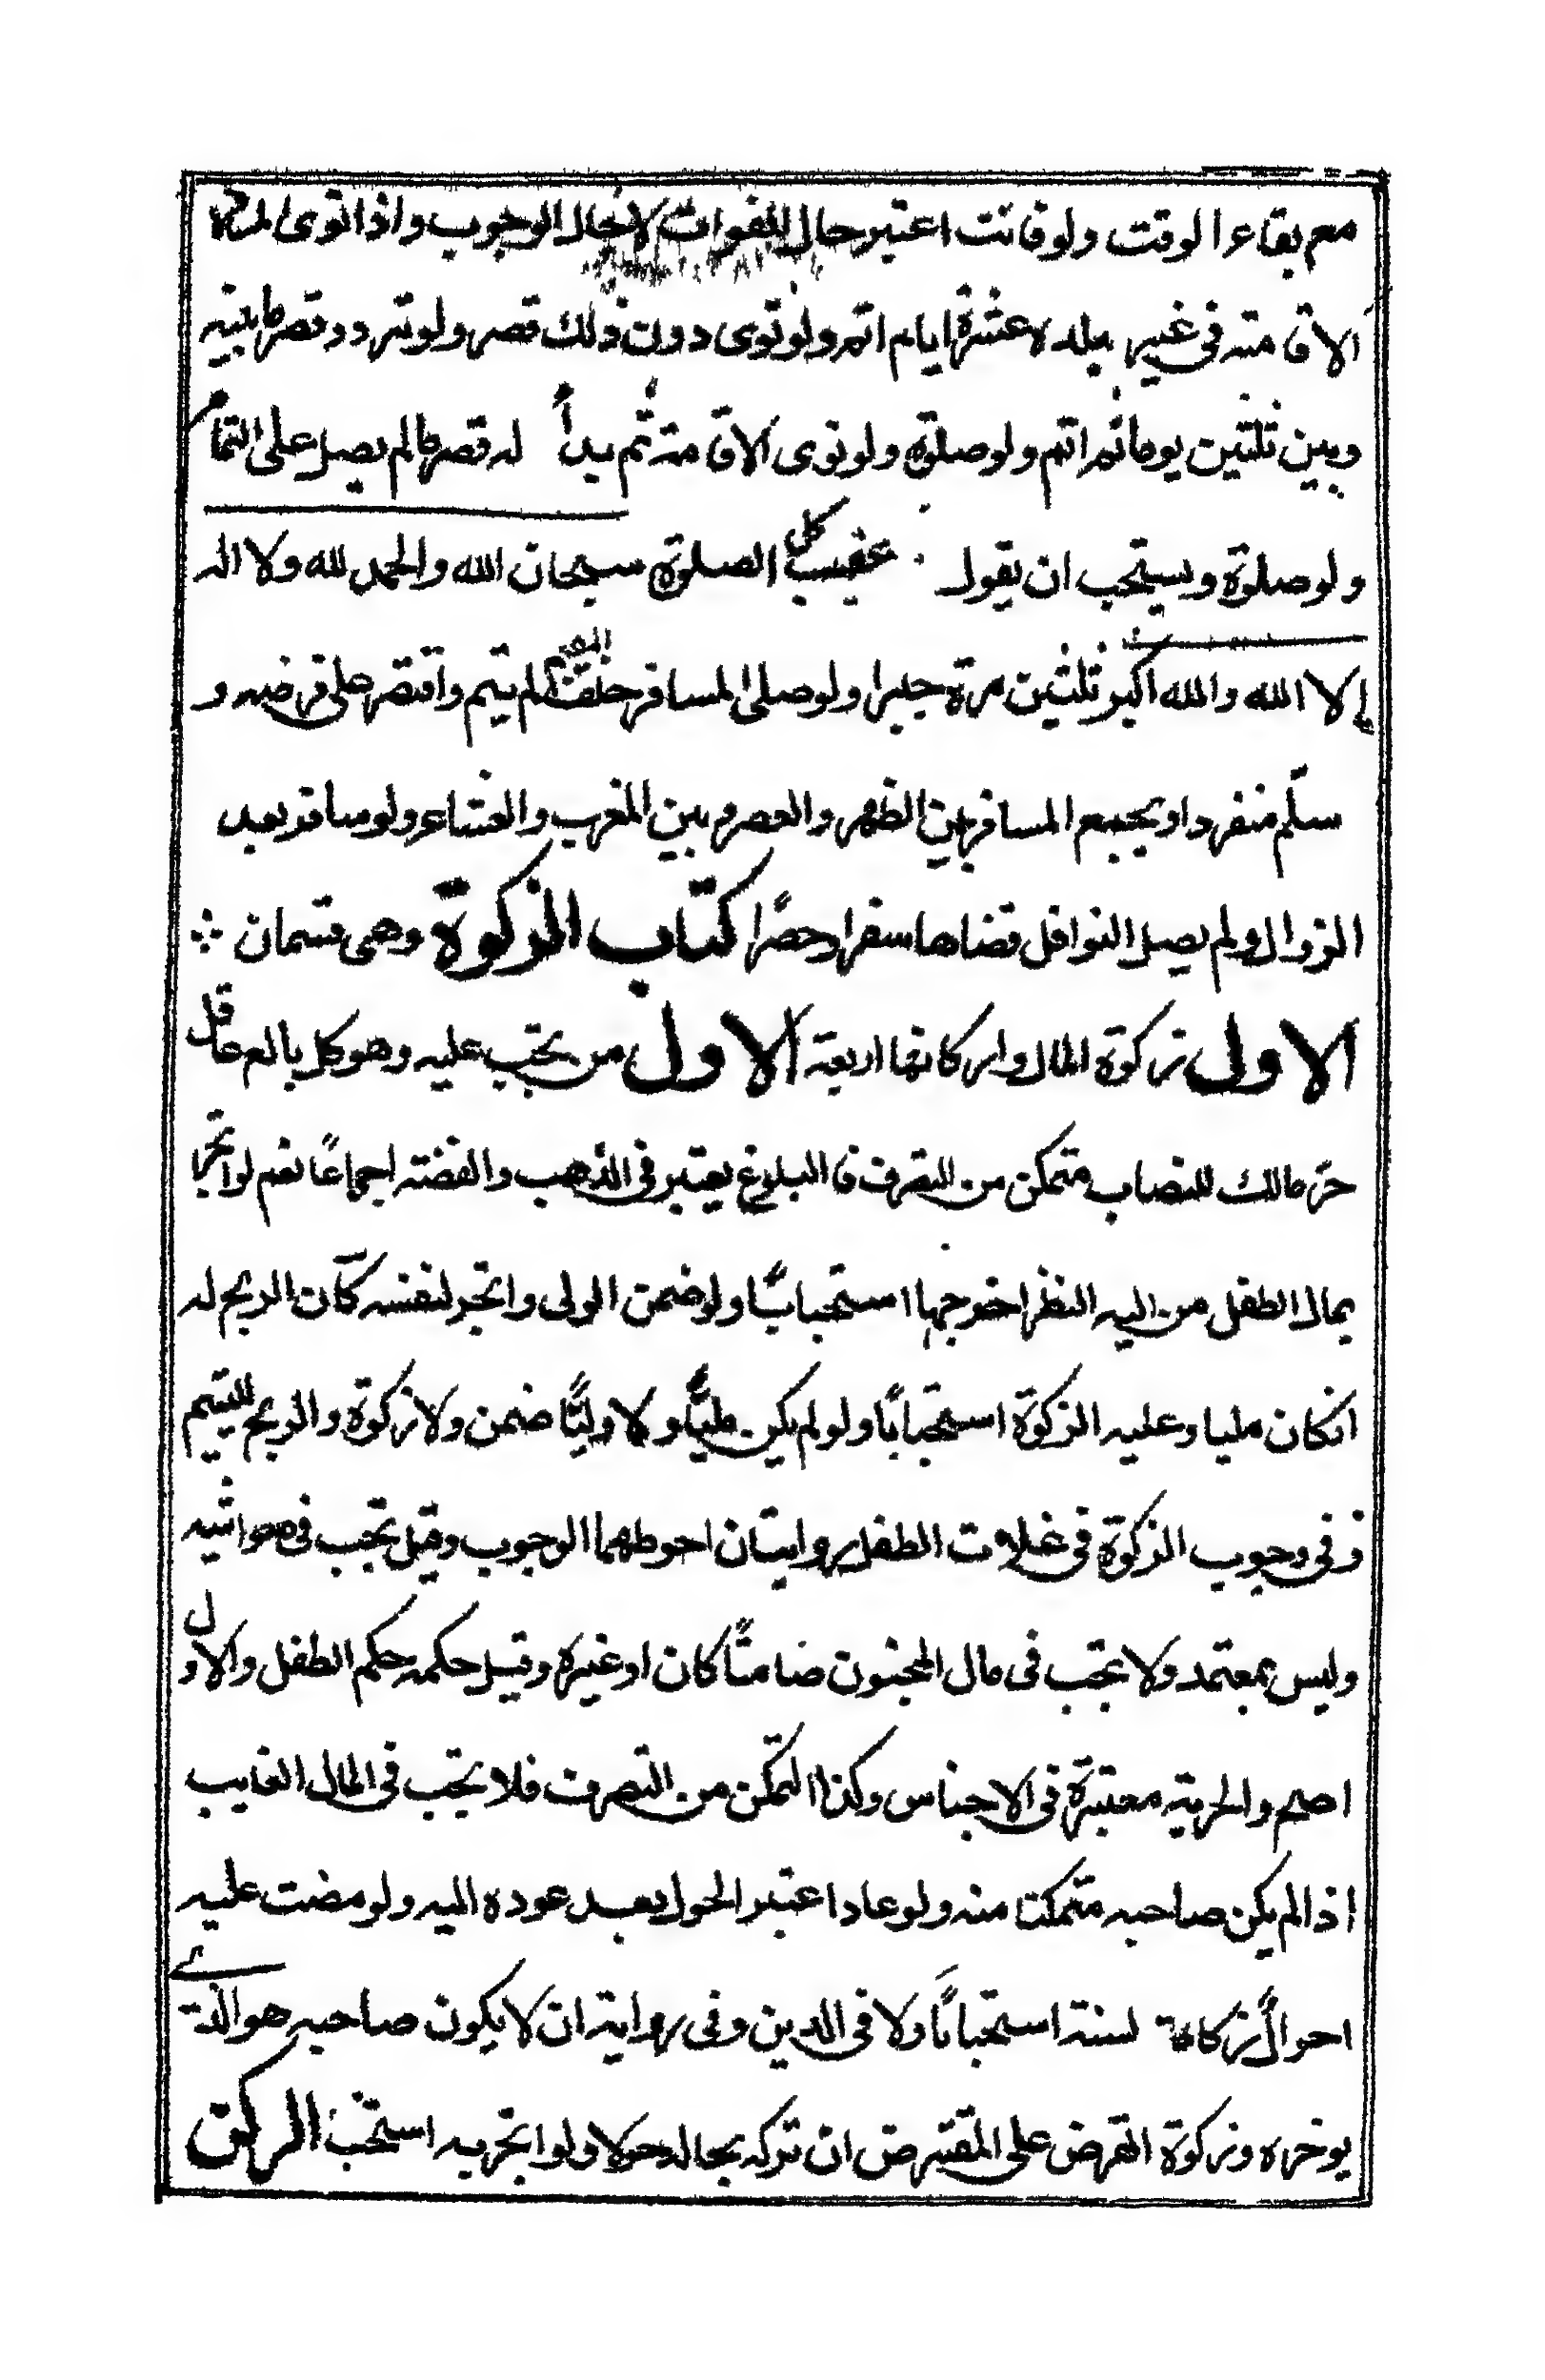 مع بقاء الوقت ولو فاتت اعتبر حال الفوات لا حال الوجوب واذا نوى المسافر
الاقامته فى غير بلده عشرة ايام اتم ولو نوى دون ذلك قصر ولو تردد قصر ما بينه
وبين ثلثين يوما ثم اتم ولو صلوة ولو نوى الاقامته ثم بدأ له قصر ما لم يصل على التمام
ولو صلوة ويستحب ان يقول عقيب كل الصلوة سبحان الله والحمد لله ولا اله
إلا الله والله اكبر ثلثين مرة جبرا ولو صلى المسافر خلف المقيم لم يتم واقتصر على فرضه و
سلّم منفردا ويجمع المسافر بين الظهر والعصر وبين المغرب والعشاء ولو سافر بعد
الزوال ولم يصل النوافل قضاها سفرا وحضرًا كتاب الزكوة وهى قسمان
الاول زكوة المال واركانها اربعة الاول من يجب عليه وهو كل بالغ عاقل
حرّ مالك للنصاب متمكن من التصرف فالبلوغ يعتبر فى الذهب والفضته اجماعًا نعم لو اتجر
بمال الطفل من اليه النظر اخرجها استحبابًا ولو ضمن الولى واتجر لنفسه كان الربح له
انكان مليا وعليه الزكوة استحبابًا ولو لم يكن مليًّا ولا وليًّا ضمن ولا زكوة والربح لليتيم
و فى وجوب الزكوة فى غلات الطفل روايتان احوطهما الوجوب وقيل تجب فى مواشيه
وليس بمعتمد ولا تجب فى مال المجنون ضامتًا كان او غيره وقيل حكمه حكم الطفل والاول
اصح والحرية معتبرة فى الاجناس وكذا التمكن من التصرف فلا تجب فى المال الغايب
اذا لم يكن صاحبه متمكنا منه ولو عاد اعتبر الحول بعد عوده اليه ولو مضت عليه
احوالٌ زكاه لسنة استحبابًا ولا فى الدين وفى رواية ان لا يكون صاحبه هو الذى
يوخره وزكوة القرض على المقترض ان تركه بحاله حولا ولو اتجر به استحب الركن